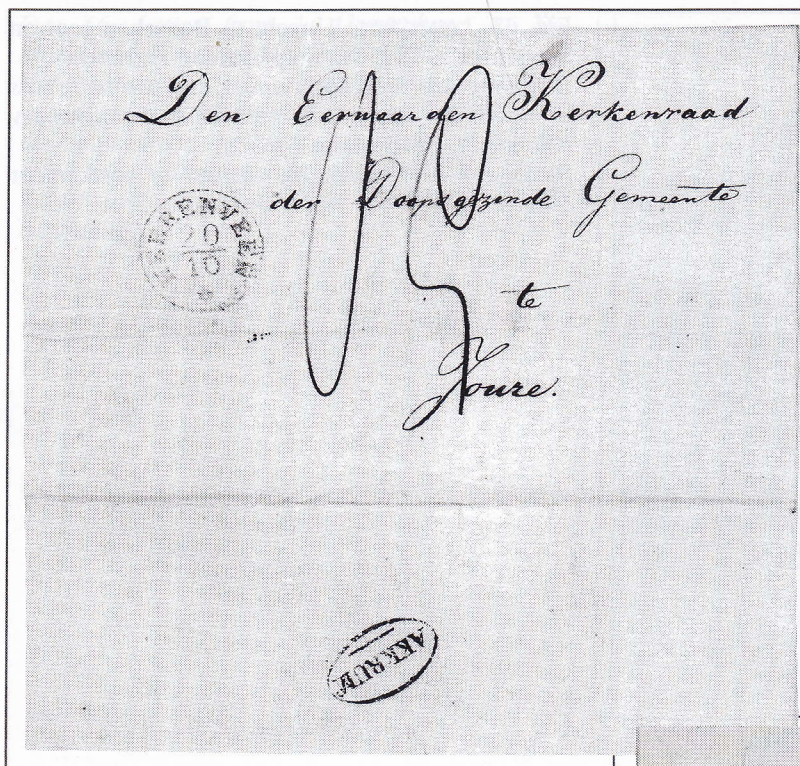 Den Eerwaarden Kerkenraad
der Doopsgezinde Gemeente
HEERENVEEN
20
10
te
Joure.
AKKRUM